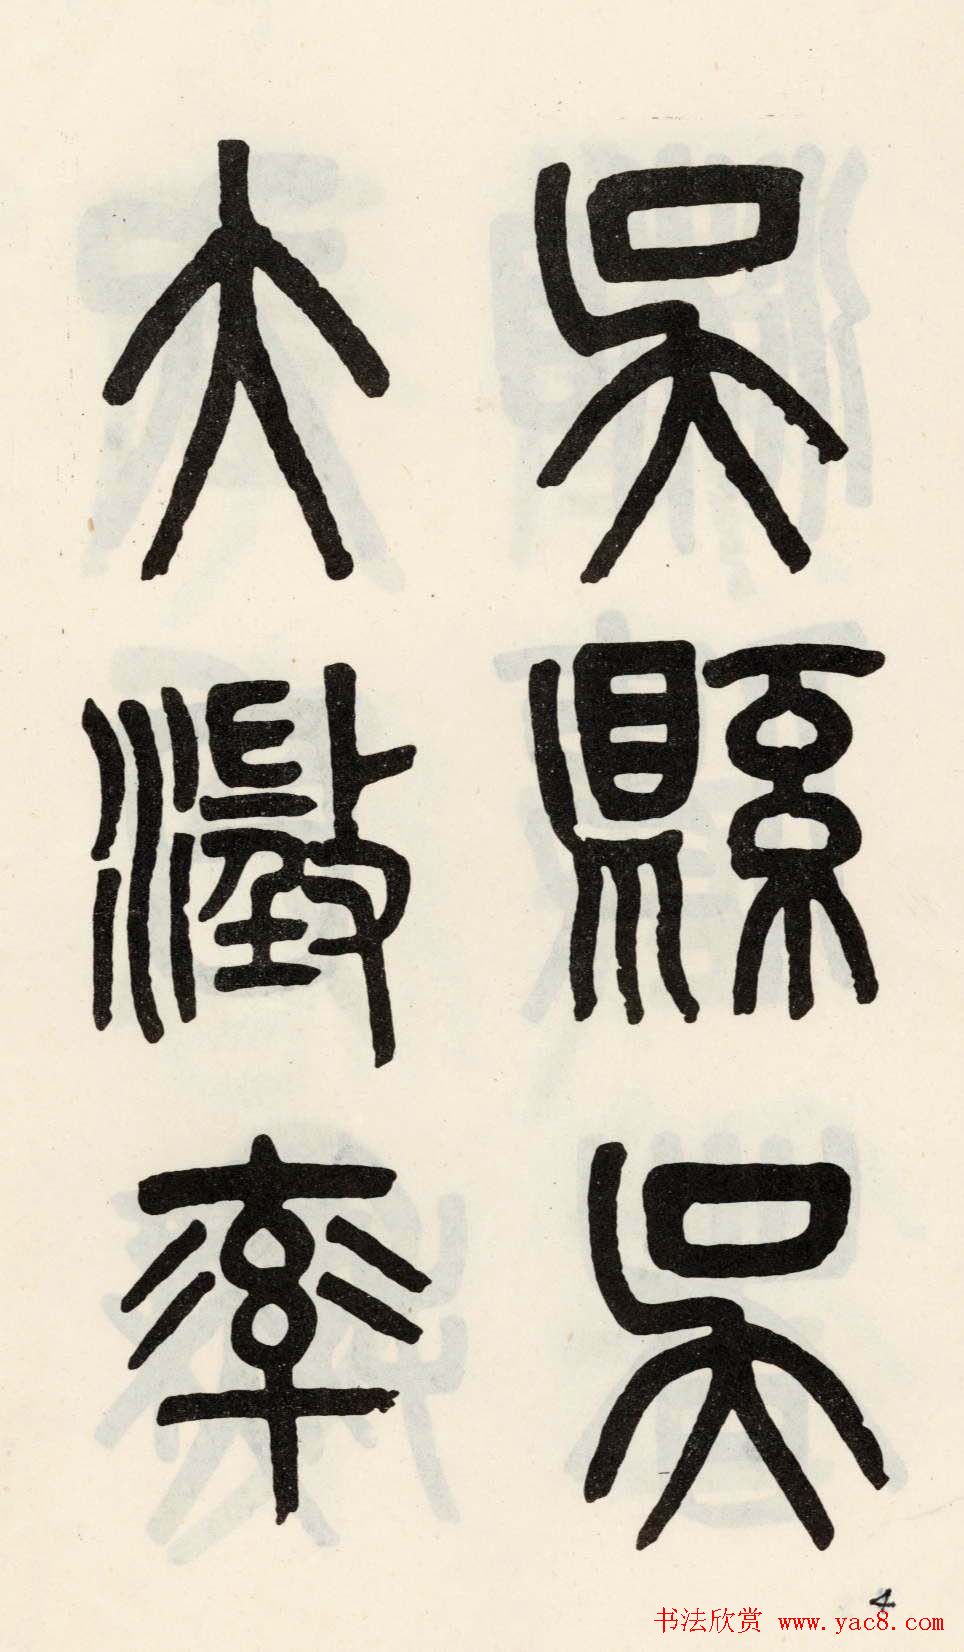 吳縣吳
大澂率
4
书法欣赏 www.yac8.com